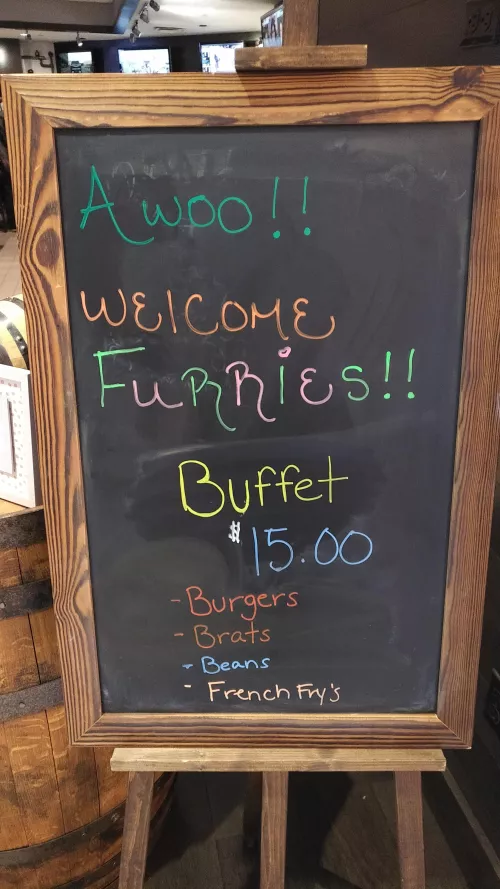 Awoo!!
WELCOME
FURRiES!!
Buffet
$15.00
- Burgers
- Brats
- Beans
- French Fry's